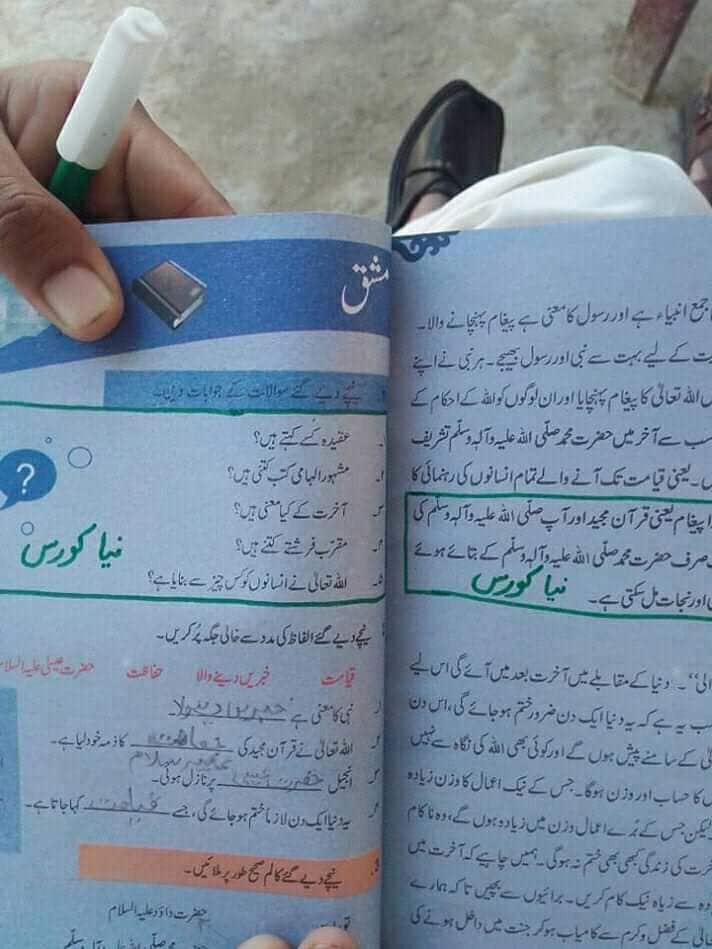 جمع انبیاء ہے اور رسول کا معنی ہے پیغام پہنچانے والا۔
کے لیے بہت سے نبی اور رسول بھیجے۔ ہر نبی نے اپنے
اللہ تعالیٰ کا پیغام پہنچایا اور ان لوگوں کو اللہ کے احکام کے
سب سے آخر میں حضرت محمد صلّی اللہ علیہ وآلہٖ وسلّم تشریف
۔ یعنی قیامت تک آنے والے تمام انسانوں کی رہنمائی کا
پیغام یعنی قرآن مجید اور آپ صلّی اللہ علیہ وآلہٖ وسلّم کی
صرف حضرت محمد صلّی اللہ علیہ وآلہٖ وسلّم کے بتائے ہوئے
اور نجات مل سکتی ہے۔
نیا کورس
"۔ دنیا کے مقابلے میں آخرت بعد میں آئے گی اس لیے
یہ ہے کہ یہ دنیا ایک دن ضرور ختم ہو جائے گی، اس دن
کے سامنے پیش ہوں گے اور کوئی بھی اللہ کی نگاہ سے نہیں
کا حساب اور وزن ہوگا۔ جس کے نیک اعمال کا وزن زیادہ
لیکن جس کے بُرے اعمال وزن میں زیادہ ہوں گے، وہ ناکام
کی زندگی کبھی بھی ختم نہ ہوگی۔ ہمیں چاہیے کہ آخرت میں
سے زیادہ نیک کام کریں۔ برائیوں سے بچیں تاکہ ہمارے
کے فضل و کرم سے کامیاب ہو کر جنت میں داخل ہونے کی
مشق
نیچے دیے گئے سوالات کے جوابات دیں۔
عقیدہ کسے کہتے ہیں؟
۲۔ مشہور الہامی کتب کتنی ہیں؟
۳۔ آخرت کے کیا معنی ہیں؟
۴۔ مقرّب فرشتے کتنے ہیں؟
۵۔ اللہ تعالیٰ نے انسانوں کو کس چیز سے بنایا ہے؟
نیا کورس
نیچے دیے گئے الفاظ کی مدد سے خالی جگہ پُر کریں۔
قیامت خبریں دینے والا حفاظت حضرت عیسیٰ علیہ السلام
نبی کا معنی ہے
۲۔ اللہ تعالیٰ نے قرآن مجید کی حفاظت کا ذمہ خود لیا ہے۔
۳۔ انجیل حضرت پر نازل ہوئی۔
۴۔ یہ دنیا ایک دن لازماً ختم ہو جائے گی، جسے قیامت کہا جاتا ہے۔
3۔ نیچے دیے گئے کالم صحیح طور پر ملائیں۔
حضرت داؤد علیہ السلام
حضرت محمد صلّی اللہ علیہ وآلہٖ وسلّم